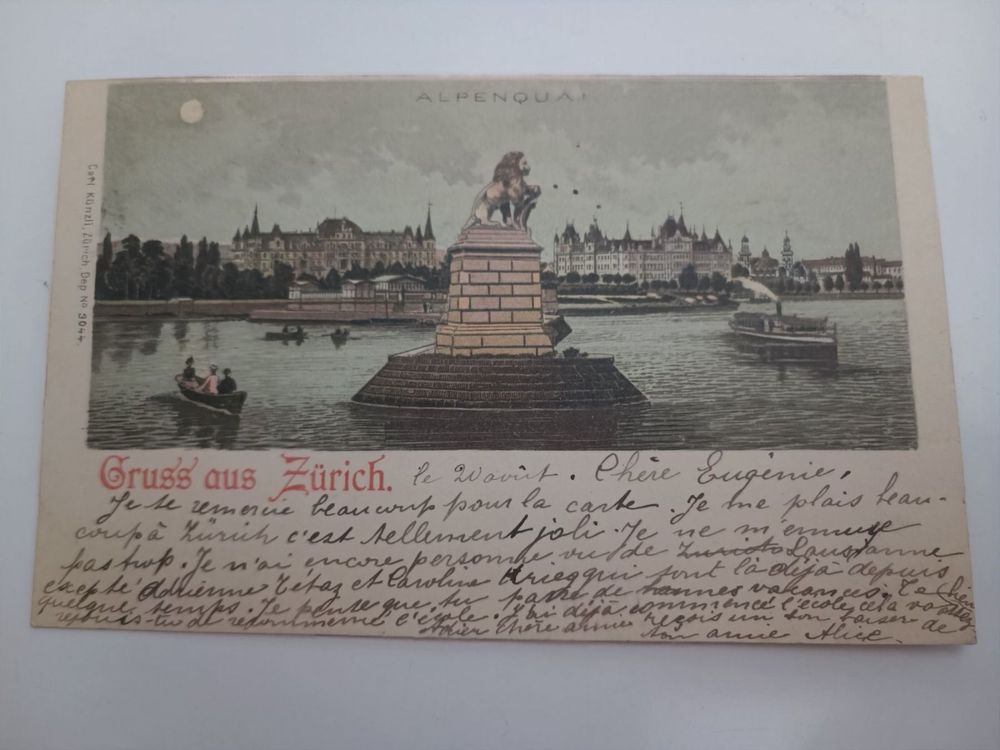 ALPENQUAI
Carl Künzli, Zürich Dep. No 3044.
Gruss aus Zürich. le 20 août. Chère Eugénie,
Je te remercie beaucoup pour la carte. Je me plais beau-
coup à Zürich c'est tellement joli. Je ne m'ennuye
pas trop. Je n'ai encore personne vu de Lausanne
excepté Adrienne Tétaz et Caroline Krieg qui sont là déjà depuis
quelque temps. Je pense que tu passe de bonnes vacances. Te
réjouis-tu de recommencer l'école. J'ai déjà commencé l'école, cela va assez
Adieu chère amie reçois un bon baiser de
ton amie Alice.